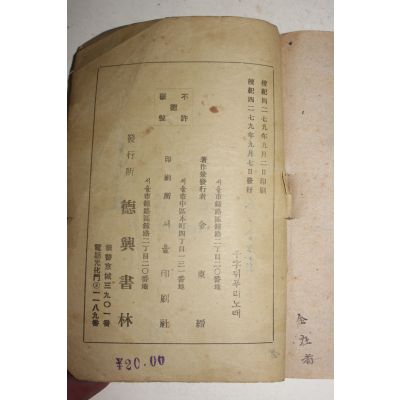 檀紀四二七九年九月二日印刷
檀紀四二七九年九月七日發行
서울市鍾路區鍾路二丁目二〇番地
著作兼發行者 金東縉
서울市中區本町四丁目一三一番地
印刷所 서울印刷社
不許
複製
서울市鍾路區鍾路二丁目二〇番地
發行所 德興書林
振替京城三九〇一番
電話光化門②一一八九番
¥20.00